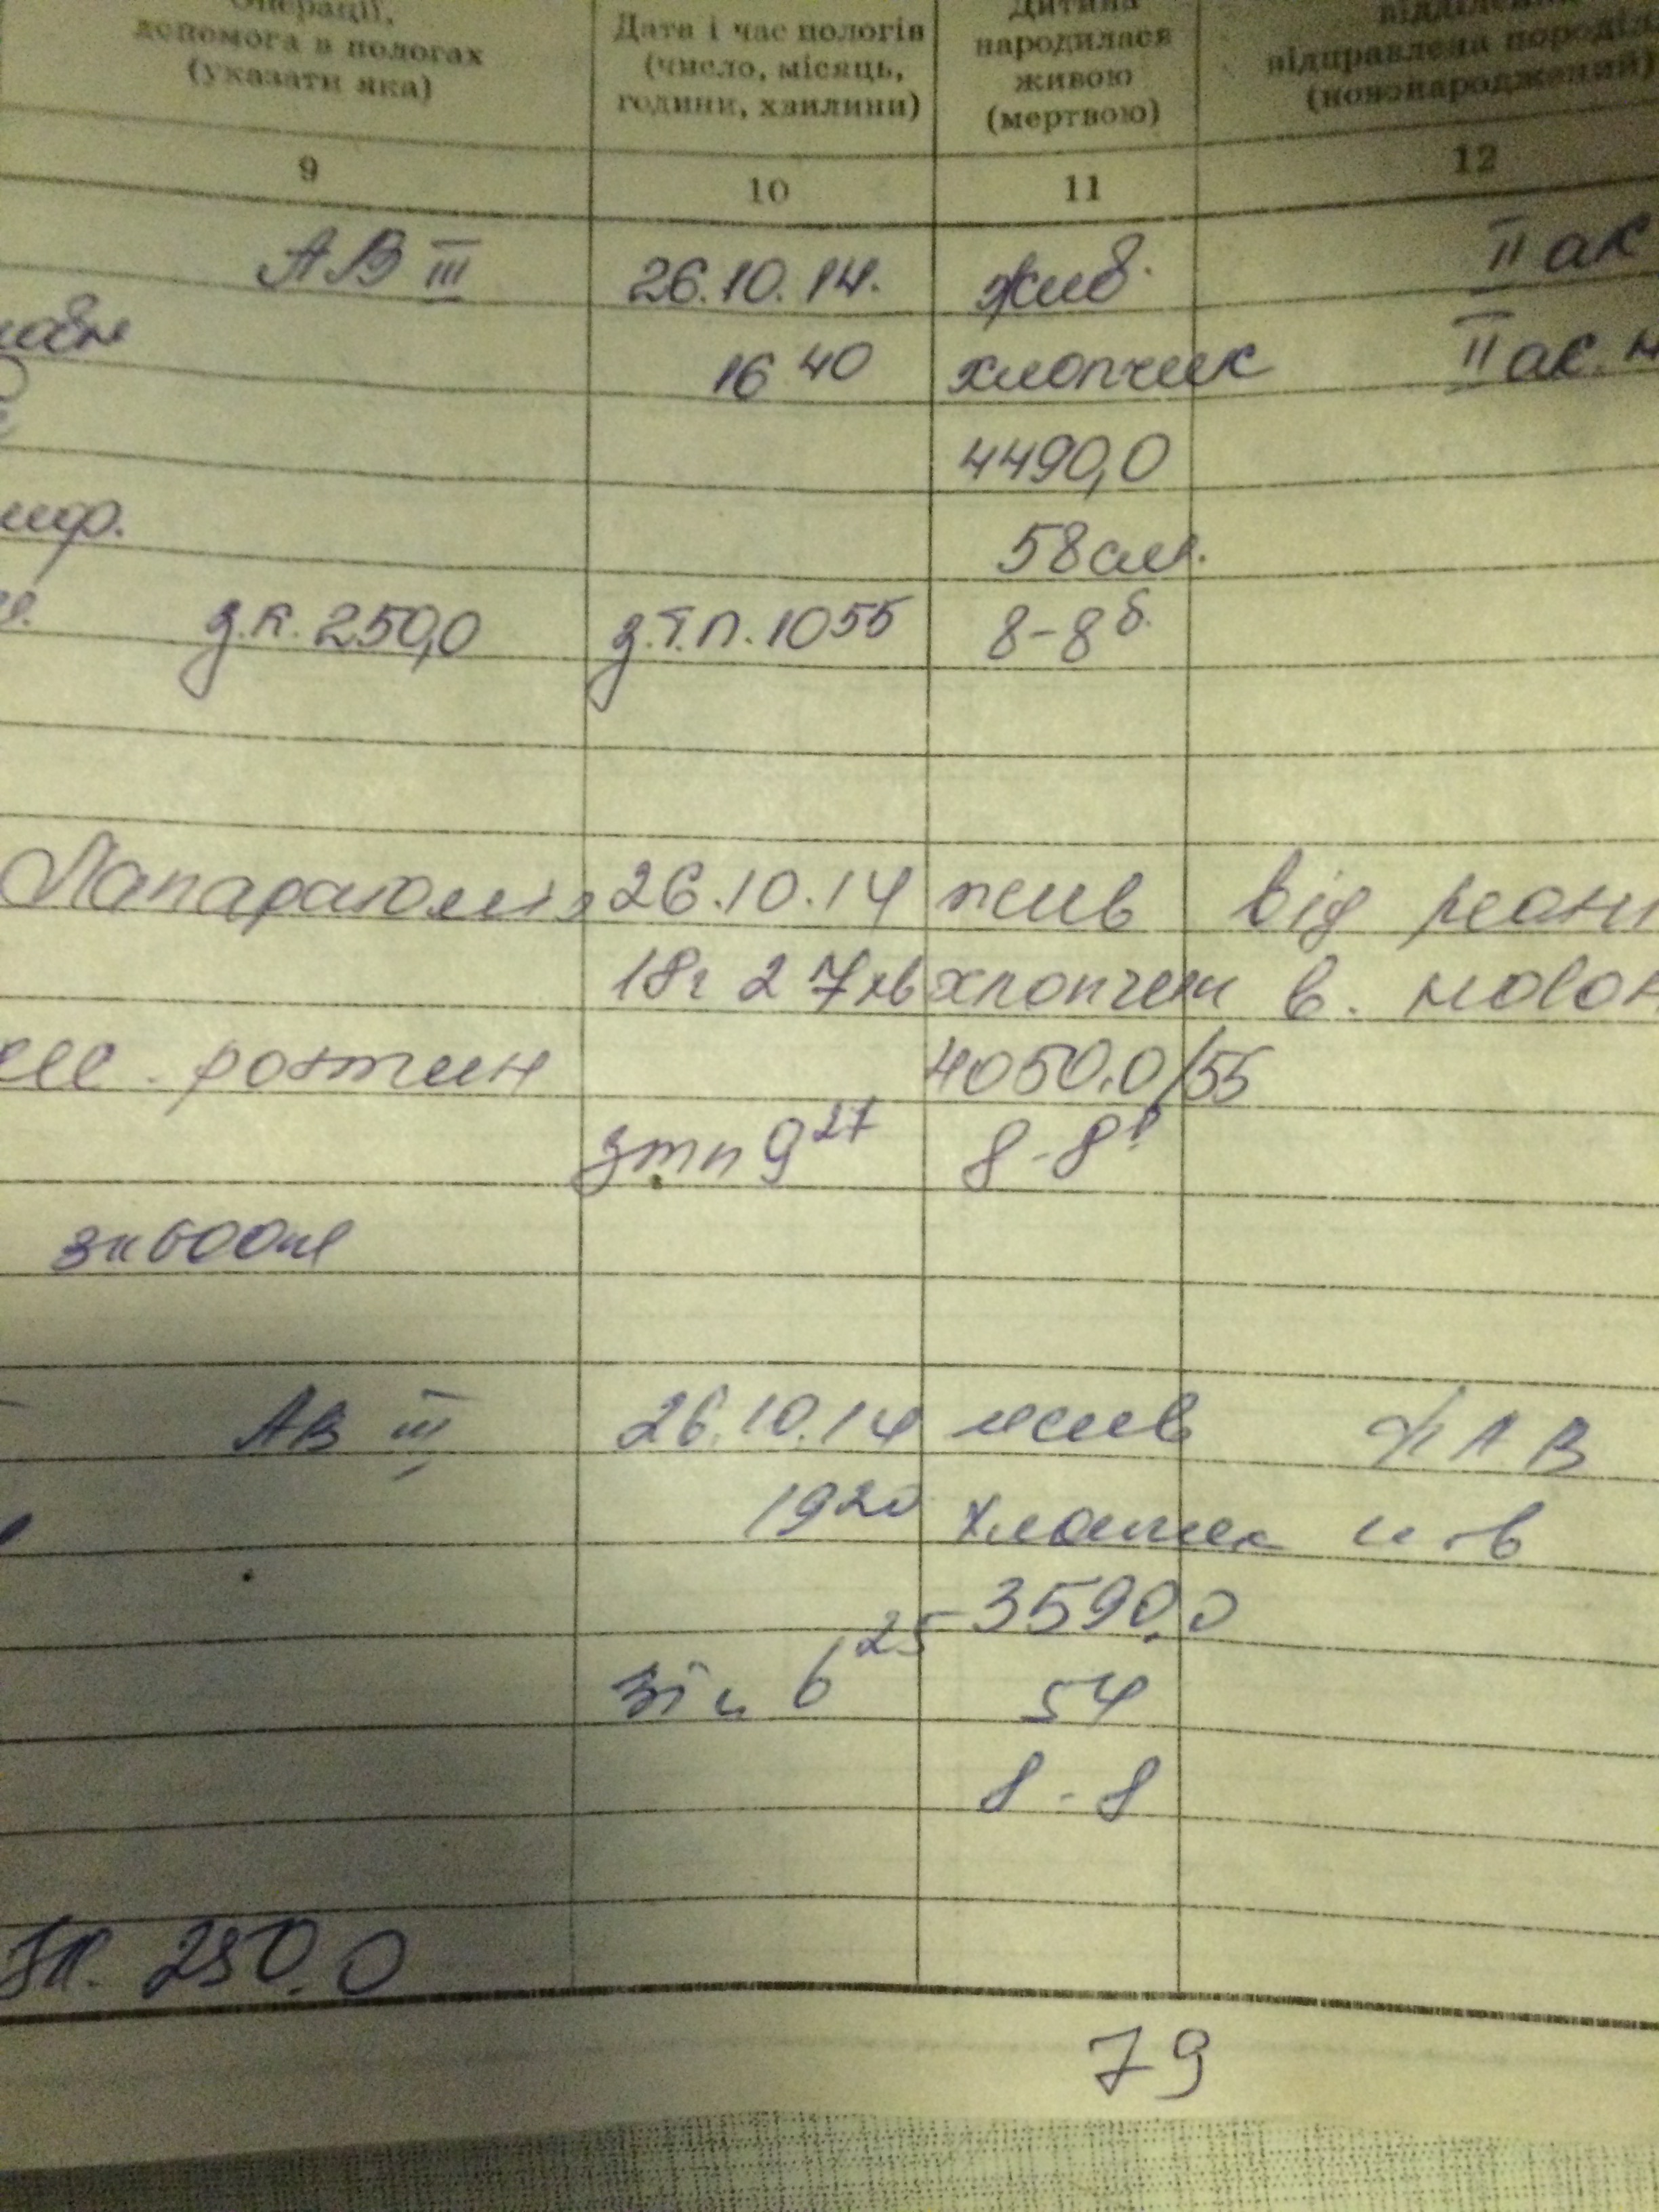 Операції,
допомога в пологах
(указати яка)
Дата і час пологів
(число, місяць,
години, хвилини)
Дитина
народилася
живою
(мертвою)
відправлена
(новонароджений)
9 10 11 12
АВ III 26.10.14. жив. II ак
16 40 хлопчик II ак.
4490,0
58 см.
з.к. 250,0 з.т.п. 10 55 8-8 б.
Лапаратомія 26.10.14 жив від
18г 27хв хлопчик в.
розтин 4050.0/55
зтп 9 27 8-8 б
зк 600мл
АВ III 26.10.14 жив
19 20 хлопчик
3590,0
6 25 54
8-8
зк. 250.0
79